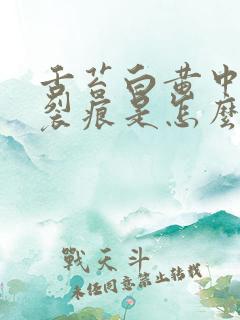 舌苔白黄中
裂痕是怎麼
戰天斗
未任同意禁止转载